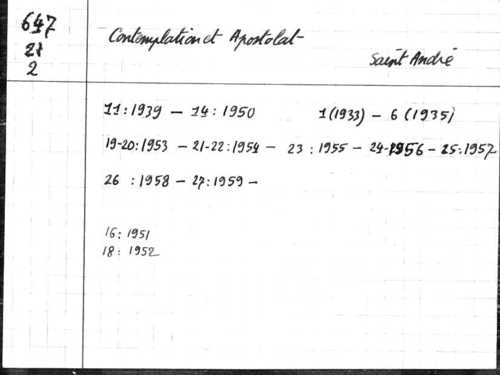 647
21
2
Contemplation et Apostolat
Saint André
11:1939 – 14:1950 1(1933) – 6(1935)
19-20:1953 – 21-22:1954 – 23:1955 – 24-1956 – 25:1957
26 :1958 – 27:1959 –
16: 1951
18: 1952